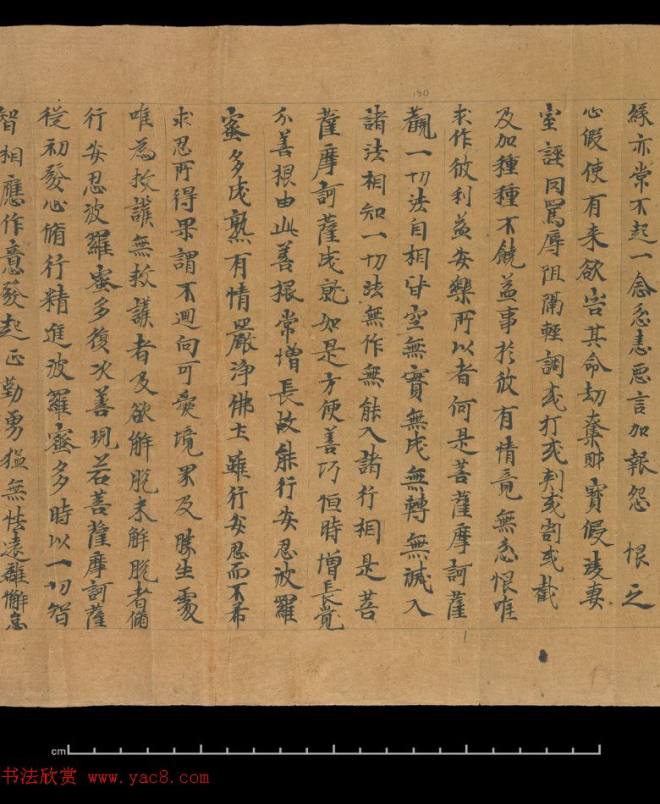 緣亦常不起一念忿恚惡言加報怨恨之
心假使有来欲害其命劫棄財寶假凌妻
室誣罔罵辱阻隔輕調或打或刺或割或截
及加種種不饒益事於彼有情竟無忿恨唯
求作彼利益安樂所以者何是菩薩摩訶薩
觀一切法自相皆空無實無成無轉無滅入
諸法相知一切法無作無能入諸行相是菩
薩摩訶薩成就如是方便善巧恒時增長覺
分善根由此善根常增長故能行安忍波羅
蜜多成熟有情嚴淨佛土雖行安忍而不希
求忍所得果謂不迴向可愛境界及勝生處
唯為救護無救護者及欲解脫未解脫者脩
行安忍波羅蜜多復次善現若菩薩摩訶薩
從初發心脩行精進波羅蜜多時以一切智
智相應作意發起正勤勇猛無怯遠離懈怠
130
1
cm
书法欣赏 www.yac8.com